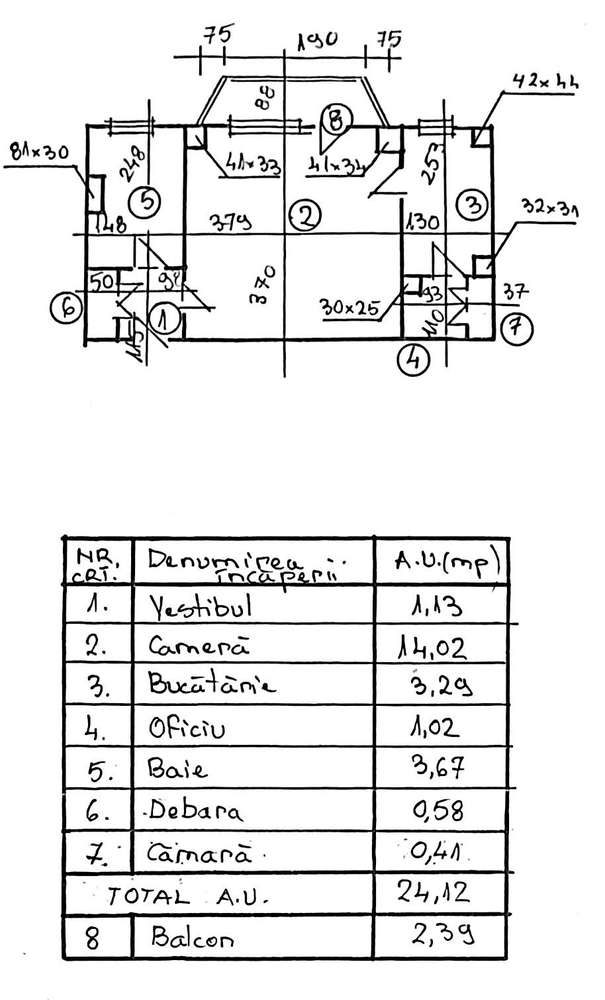 75 190 75
42x44
88
8
81x30
248
41x33
41x34
253
5
2
3
32x31
148
379
130
50
98
370
93
37
6
1
30x25
110
7
115
4
NR. CRT. Denumirea încăperii A.U.(mp)
1. Vestibul 1,13
2. Cameră 14,02
3. Bucătărie 3,29
4. Oficiu 1,02
5. Baie 3,67
6. Debara 0,58
7. Cămară 0,41
TOTAL A.U. 24,12
8 Balcon 2,39